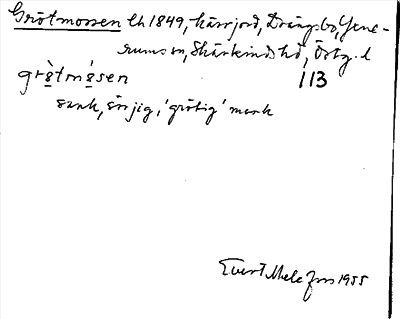 Grötmossen lh 1849, kärrjord, Drängsbo, Yene-
rums sn, Skärkinds hd, Östg. l
113
grö̀tmósen
sank, sörjig, 'grötig' mark
Evert Melefors 1955